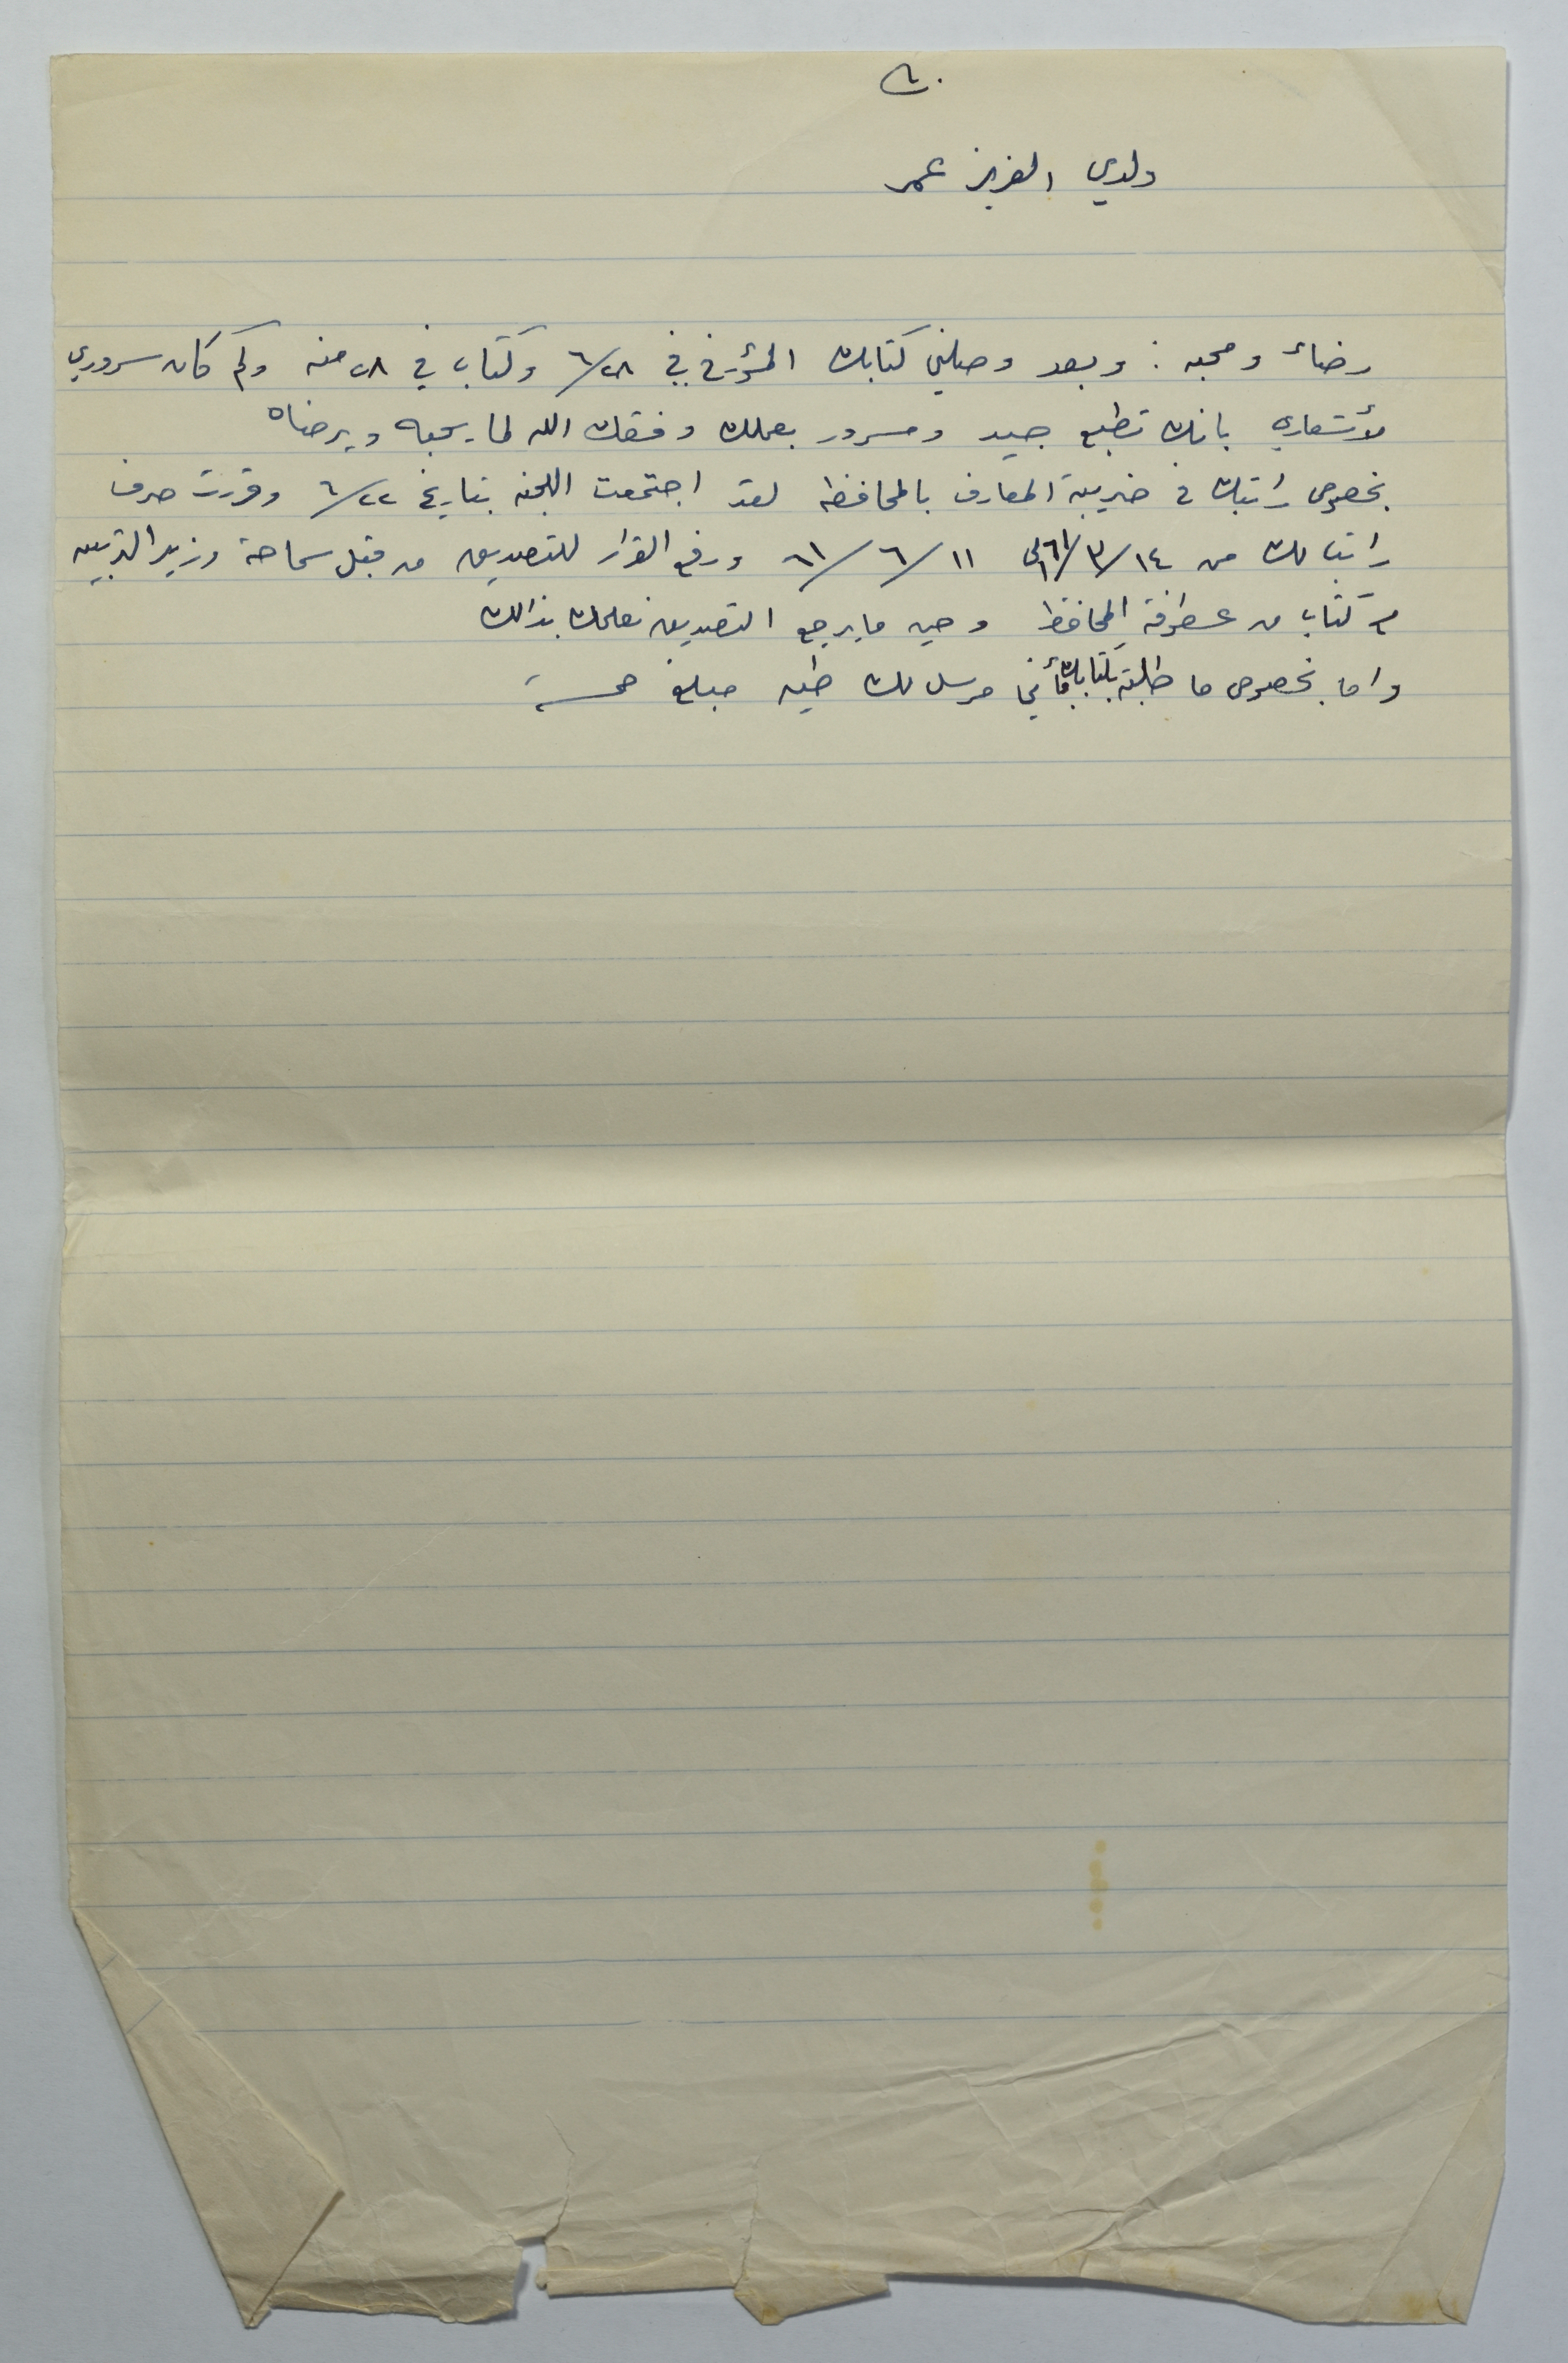 ولدي العزيز عمر
رضاء ومحبه : وبعد وصلني كتابك المؤرخ في ٦/٢٨ وكتاب في ٢٨ منه وكم كان سروري
لأشعاري بانك تطبع جيد ومسرور بعملك وفقك الله لما يحبه ويرضاه
بخصوص راتبك في ضريبة المعارف بالمحافظه لقد اجتمعت اللجنه بتاريخ ٦/٢٢ وقررت صرف
راتبا لك من ٦١/٣/١٤ الى ٦١/٦/١١ ورفع القرار للتصديق من قبل سماحة وزير التربيه
كتاب من عطوفة المحافظ وحين ما يرجع التصديق نعلمك بذالك
واما بخصوص ما طلبته بكتابك فأني مرسل لك طيه مبلغ خمسة